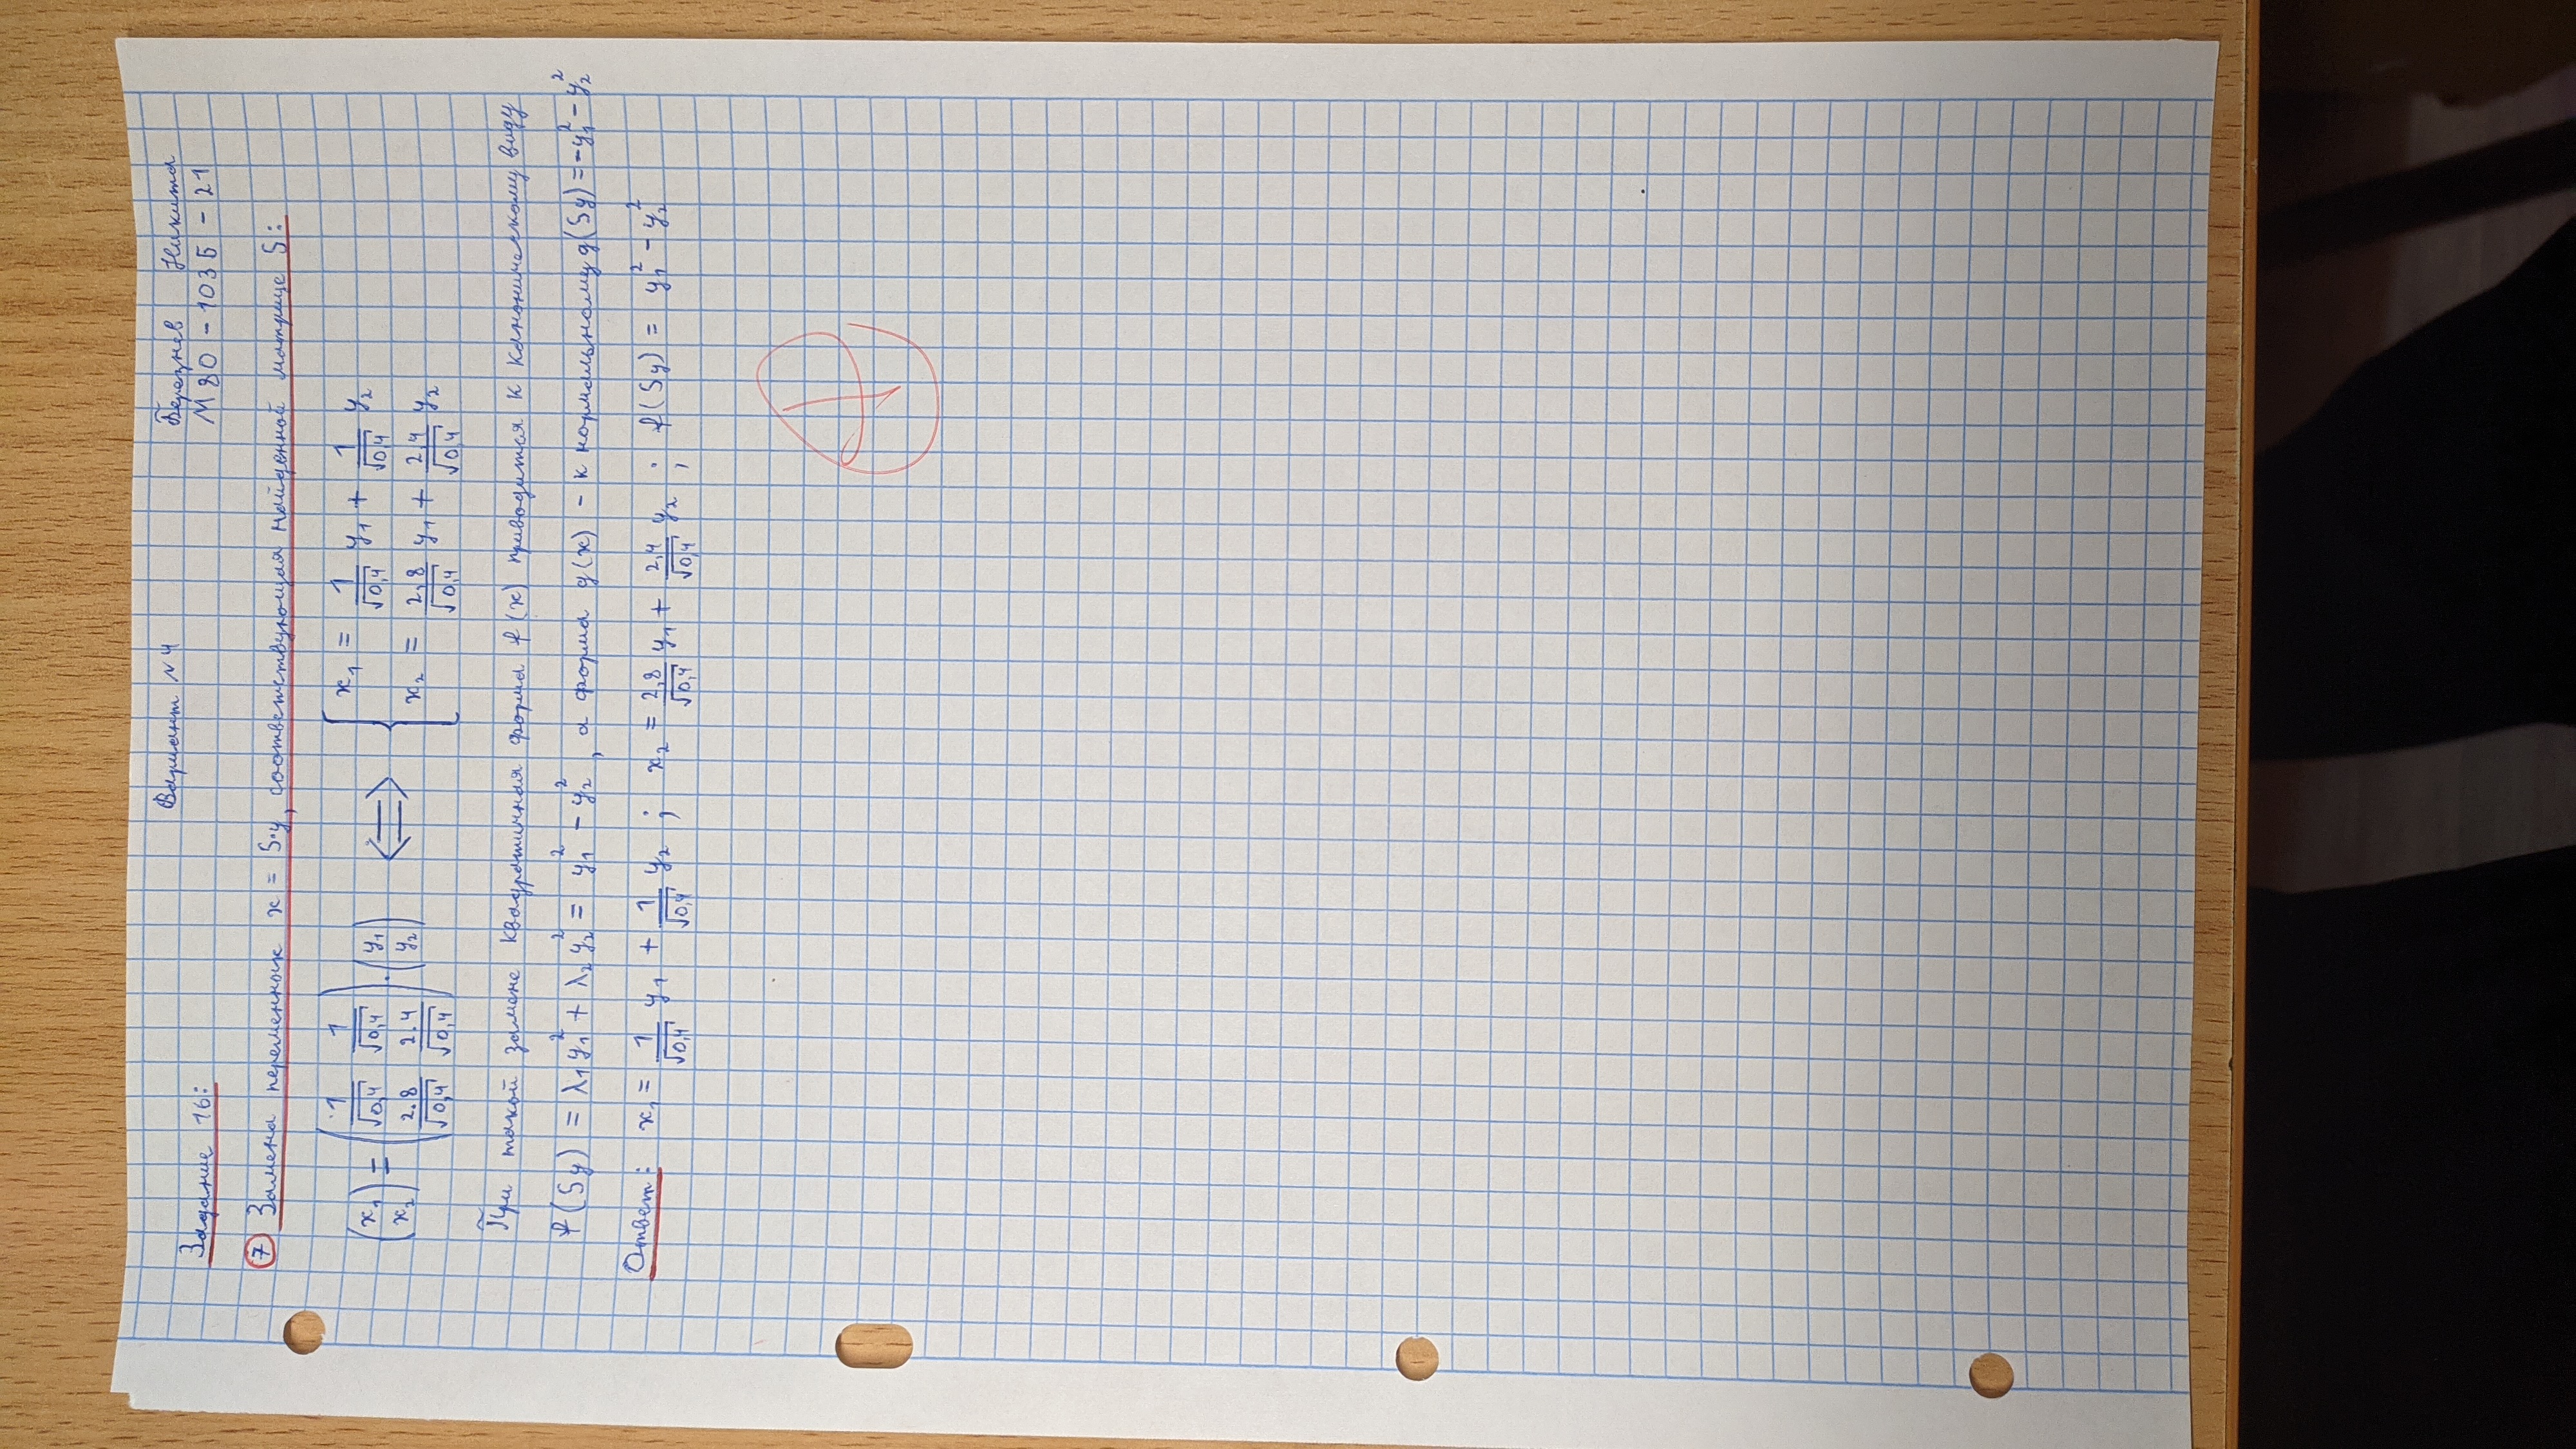 Вариант №4
Березнев Никита
Задание 16:
М80-103Б-21
7 Замена переменных x = S·y, соответствующая найденной матрице S:
(x₁ x₂) = (1/√0,4 1/√0,4 2.8/√0,4 2.4/√0,4) · (y₁ y₂) ⟺ { x₁ = 1/√0,4 y₁ + 1/√0,4 y₂
x₂ = 2,8/√0,4 y₁ + 2,4/√0,4 y₂
При такой замене квадратичная форма f(x) приводится к каноническому виду
f(Sy) = λ₁y₁² + λ₂y₂² = y₁² - y₂², а форма g(x) - к нормальному g(Sy) = -y₁² - y₂²
Ответ: x₁ = 1/√0,4 y₁ + 1/√0,4 y₂ ; x₂ = 2,8/√0,4 y₁ + 2,4/√0,4 y₂ ; f(Sy) = y₁² - y₂²